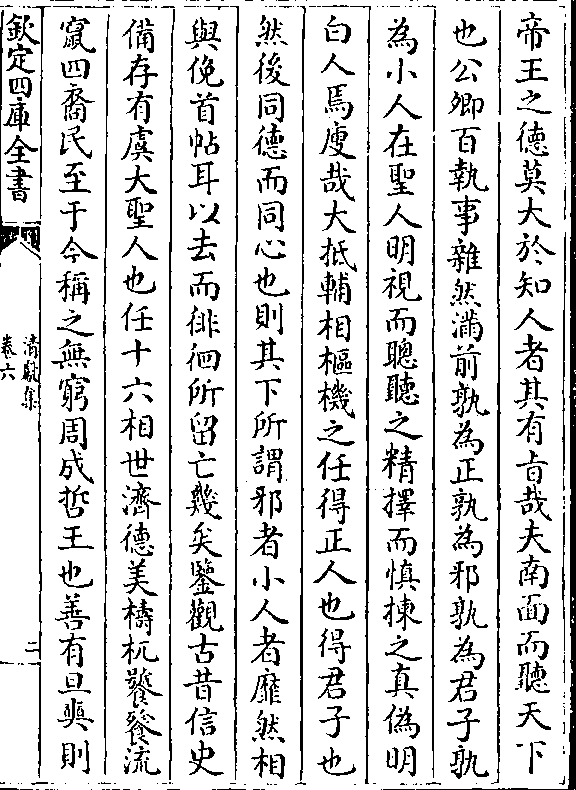 帝王之德莫大於知人者其有㫖哉夫南面而聽天下
也公卿百執事雜然滿前孰為正孰為邪孰為君子孰
為小人在聖人明視而聰聽之精擇而慎揀之真偽明
白人焉廋哉大抵輔相樞機之任得正人也得君子也
然後同德而同心也則其下所謂邪者小人者靡然相
與俛首帖耳以去而徘徊所留亡幾矣鑒觀古昔信史
備存有虞大聖人也任十六相世濟德美檮杌饕餮流
竄四裔民至于今稱之無窮周成哲王也善有旦奭則
欽定四庫全書
清獻集
卷六
二